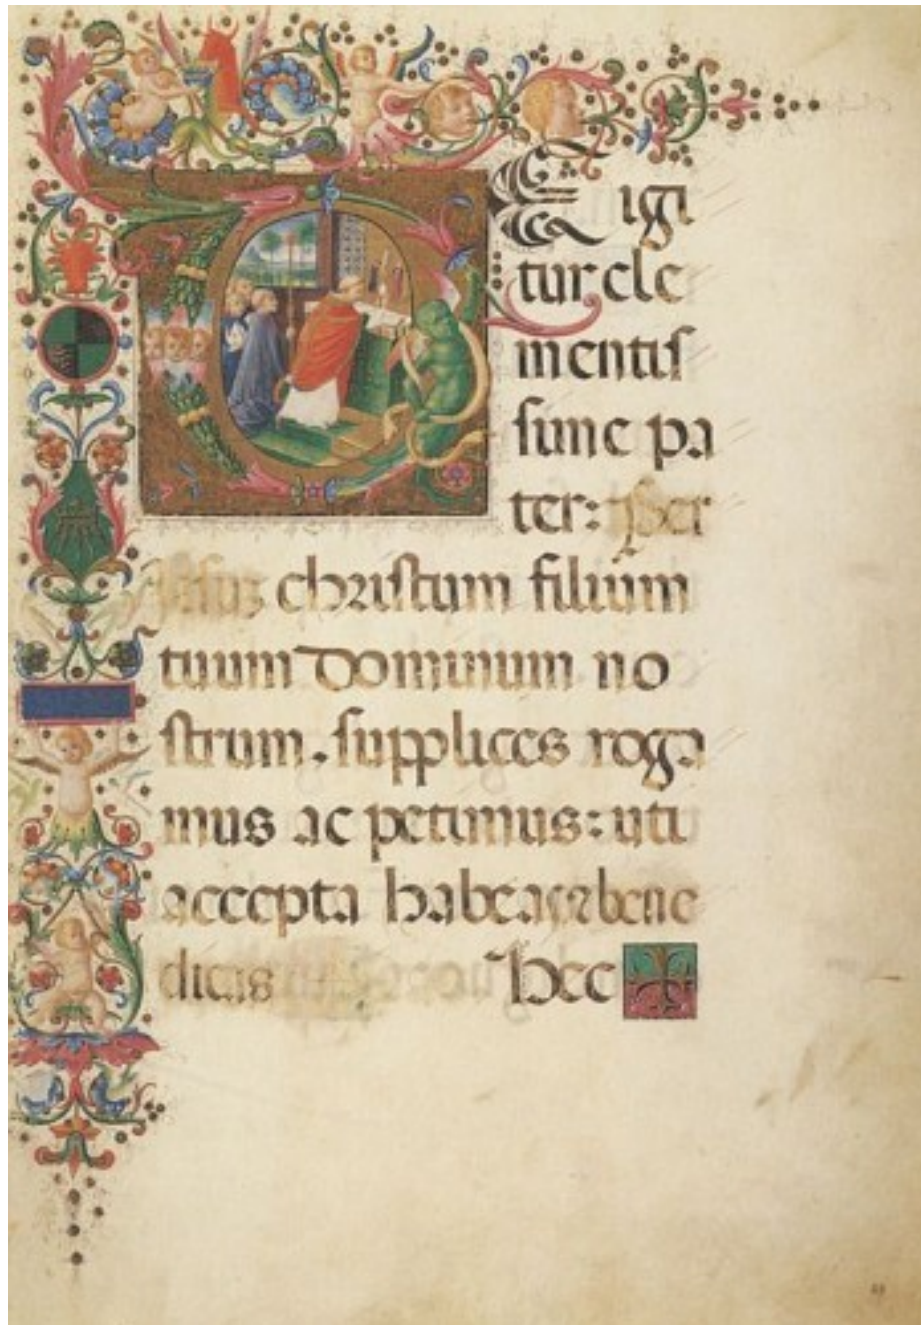 TE igi
tur cle
mentis
sime pa
ter: per
iesuz christum filium
tuum Dominum no
strum. supplices roga
mus ac petimus: uti
accepta habeas et bene
dicas Hec